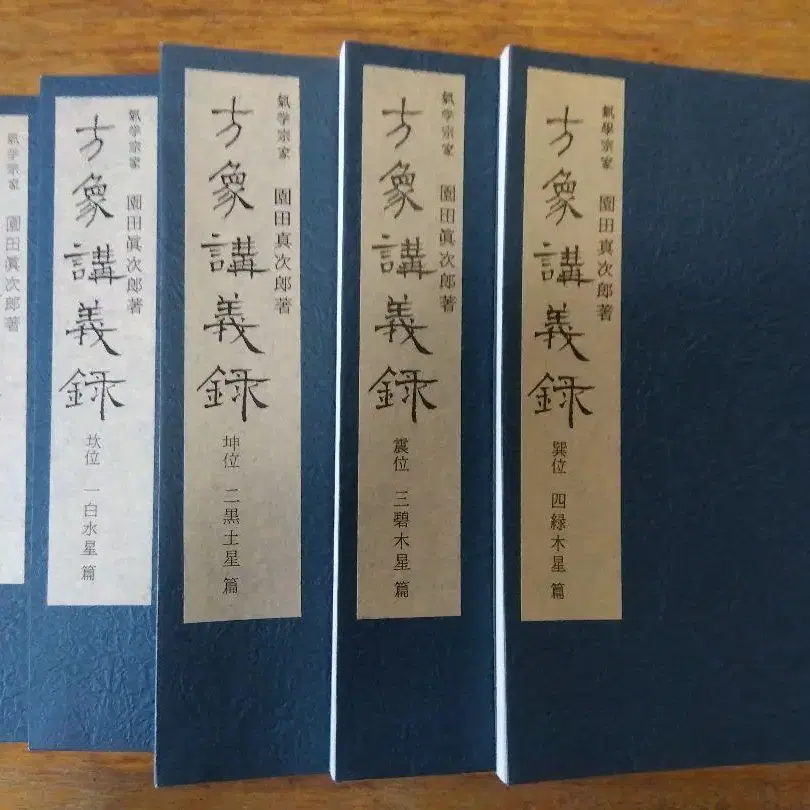 氣学宗家 園田眞次郎著
氣学宗家 園田眞次郎著
方象講義録 坎位 一白水星篇
氣学宗家 園田真次郎著
方象講義録 坤位 二黒土星篇
氣学宗家 園田眞次郎著
方象講義録 震位 三碧木星篇
氣學宗家 園田真次郎著
方象講義録 巽位 四緑木星篇